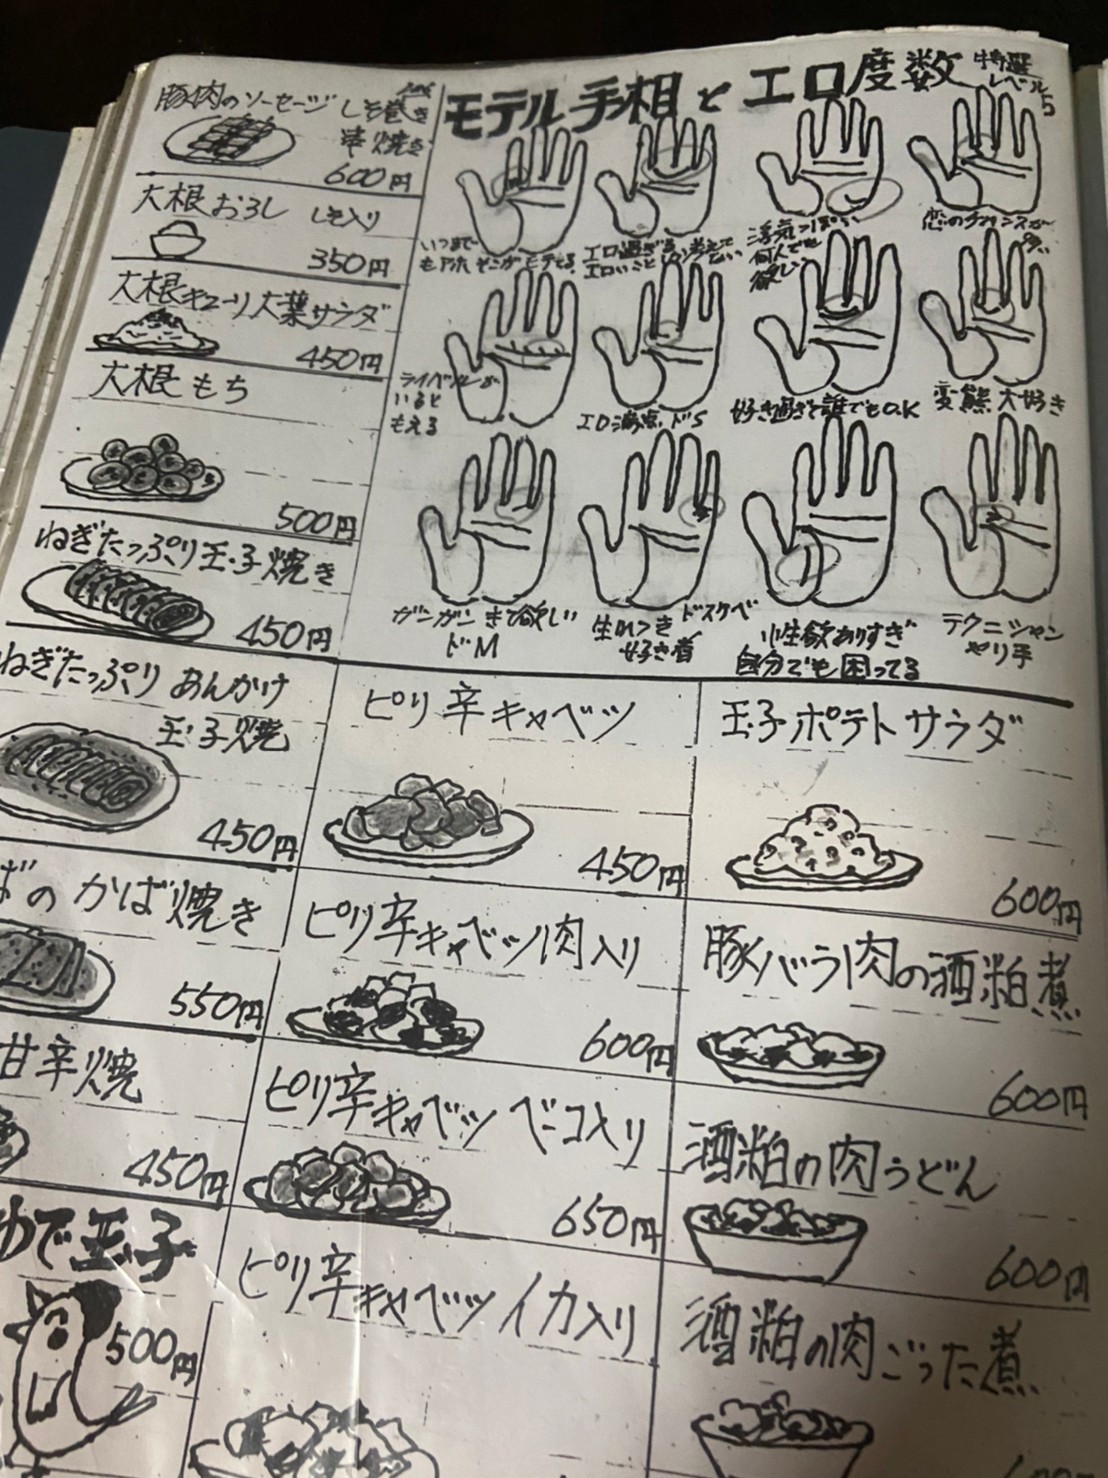 豚肉のソーセージ しそ巻き
串焼き
600円
大根おろし しそ入り
350円
大根キューリ大葉サラダ
450円
大根もち
500円
ねぎたっぷり玉子焼き
450円
モテル手相とエロ度数 特選
レベル5
いつまで
エロ過ぎる
エロいこと
浮気っぽい
何人でも
欲しい
恋のチャンスが
ライバルが
いると
もえる
ドS
好き過ぎて誰でもO.K
変態大好き
ガンガンきて欲しい
ドM
生れつき ドスケベ
好き者
性欲ありすぎ
自分でも困ってる
テクニシャン
やり手
ねぎたっぷり あんかけ
玉子焼
450円
ピリ辛キャベツ
450円
玉子ポテトサラダ
600円
ばのかば焼き
550円
ピリ辛キャベツ肉入り
600円
豚バラ肉の酒粕煮
600円
甘辛焼
450円
ピリ辛キャベツ ベーコ入り
650円
酒粕の肉うどん
600円
ゆで玉子
500円
ピリ辛キャベツイカ入り
酒粕の肉ごった煮